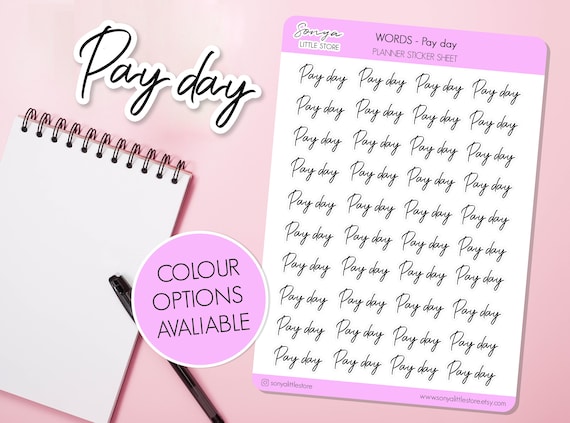 Pay day
Sonya
LITTLE STORE
WORDS - Pay day
PLANNER STICKER SHEET
Pay day Pay day Pay day Pay day
Pay day Pay day Pay day Pay day
Pay day Pay day Pay day Pay day
Pay day Pay day Pay day Pay day
Pay day Pay day Pay day Pay day
Pay day Pay day Pay day Pay day
Pay day Pay day Pay day Pay day
Pay day Pay day Pay day Pay day
Pay day Pay day Pay day Pay day
Pay day Pay day Pay day Pay day
COLOUR
OPTIONS
AVALIABLE
sonyalittlestore
www.sonyalittlestore.etsy.com